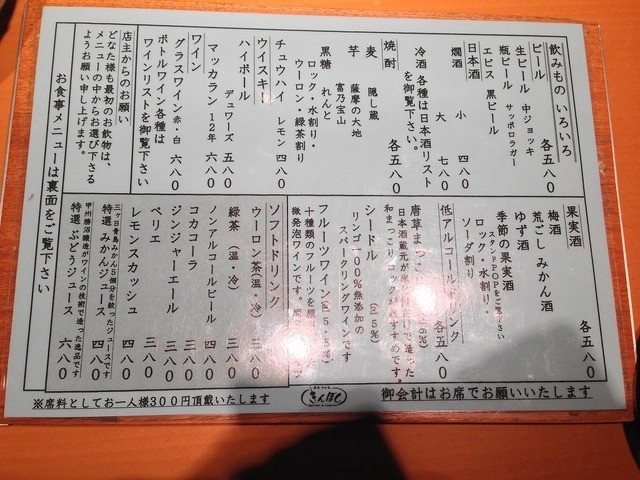 飲みもの いろいろ
ビール 各五八〇
生ビール 中ジョッキ
瓶ビール サッポロラガー
エビス 黒ビール
日本酒
燗酒 小 四八〇
大 七八〇
冷酒 各種は日本酒リスト
を御覧下さい。
焼酎 各五八〇
麦 隠し蔵
芋 薩摩の大地
富乃宝山
黒糖 れんと
ロック・水割り・
ウーロン・緑茶割り
チュウハイ レモン 四八〇
ウイスキー
ハイボール
デュワーズ 五八〇
マッカラン 12年 六八〇
ワイン
グラスワイン 赤・白 六八〇
ボトルワイン各種は
ワインリストを御覧下さい
店主からのお願い
どなた様も最初のお飲物は、
メニューの中からお選び下さる
ようお願い申し上げます。
お食事メニューは裏面をご覧下さい
果実酒 各五八〇
梅酒
荒ごし みかん酒
ゆず酒
季節の果実酒
スタンドPOPをご覧下さい
ロック・水割り・
ソーダ割り
低アルコールドリンク
各五八〇
唐草まっこ
日本酒蔵元が米
だけで造った
和まっこりロックがおすすめです。
シードル (al5%)
リンゴ100%無添加の
スパークリングワインです
フルーツワイン (al5.5%)
十種類のフルーツを
微発泡ワインです。
ソフトドリンク
ウーロン茶(温・冷) 三八〇
緑茶 (温・冷) 三八〇
ノンアルコールビール 四八〇
コカコーラ 三八〇
ジンジャーエール 三八〇
ペリエ 三八〇
レモンスカッシュ 四八〇
三ヶ日青島みかん5個分を絞ったジュースです
特選 みかんジュース 四八〇
甲州勝沼醸造がワインの技術で造った逸品です
特選 ぶどうジュース 六八〇
※席料としてお一人様300円頂戴いたします
きんぼし
御会計はお席でお願いいたします